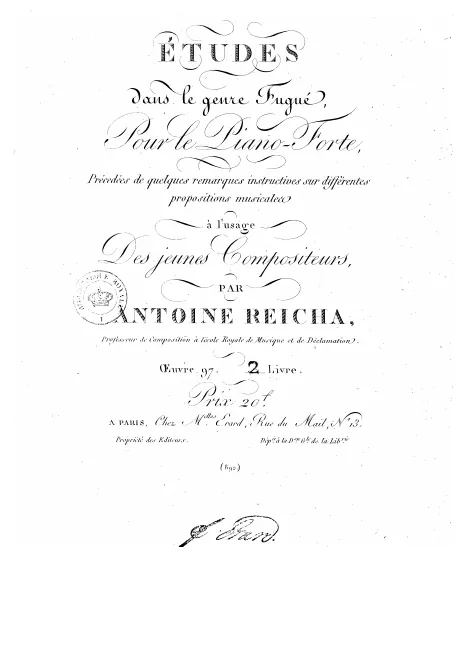 ÉTUDES
dans le genre Fugué,
Pour le Piano-Forte,
Précédées de quelques remarques instructives sur différentes
propositions musicales
à l'usage
Des jeunes Compositeurs,
PAR
ANTOINE REICHA,
Professeur de Composition à l'école Royale de Musique et de Déclamation.
Œuvre 97. 2 Livre.
Prix 20f.
A PARIS, Chez Melles Erard, Rue du Mail, No 13.
Propriété des Editeurs. Dépé à la Don Gle de la Libie
(892)
Erard